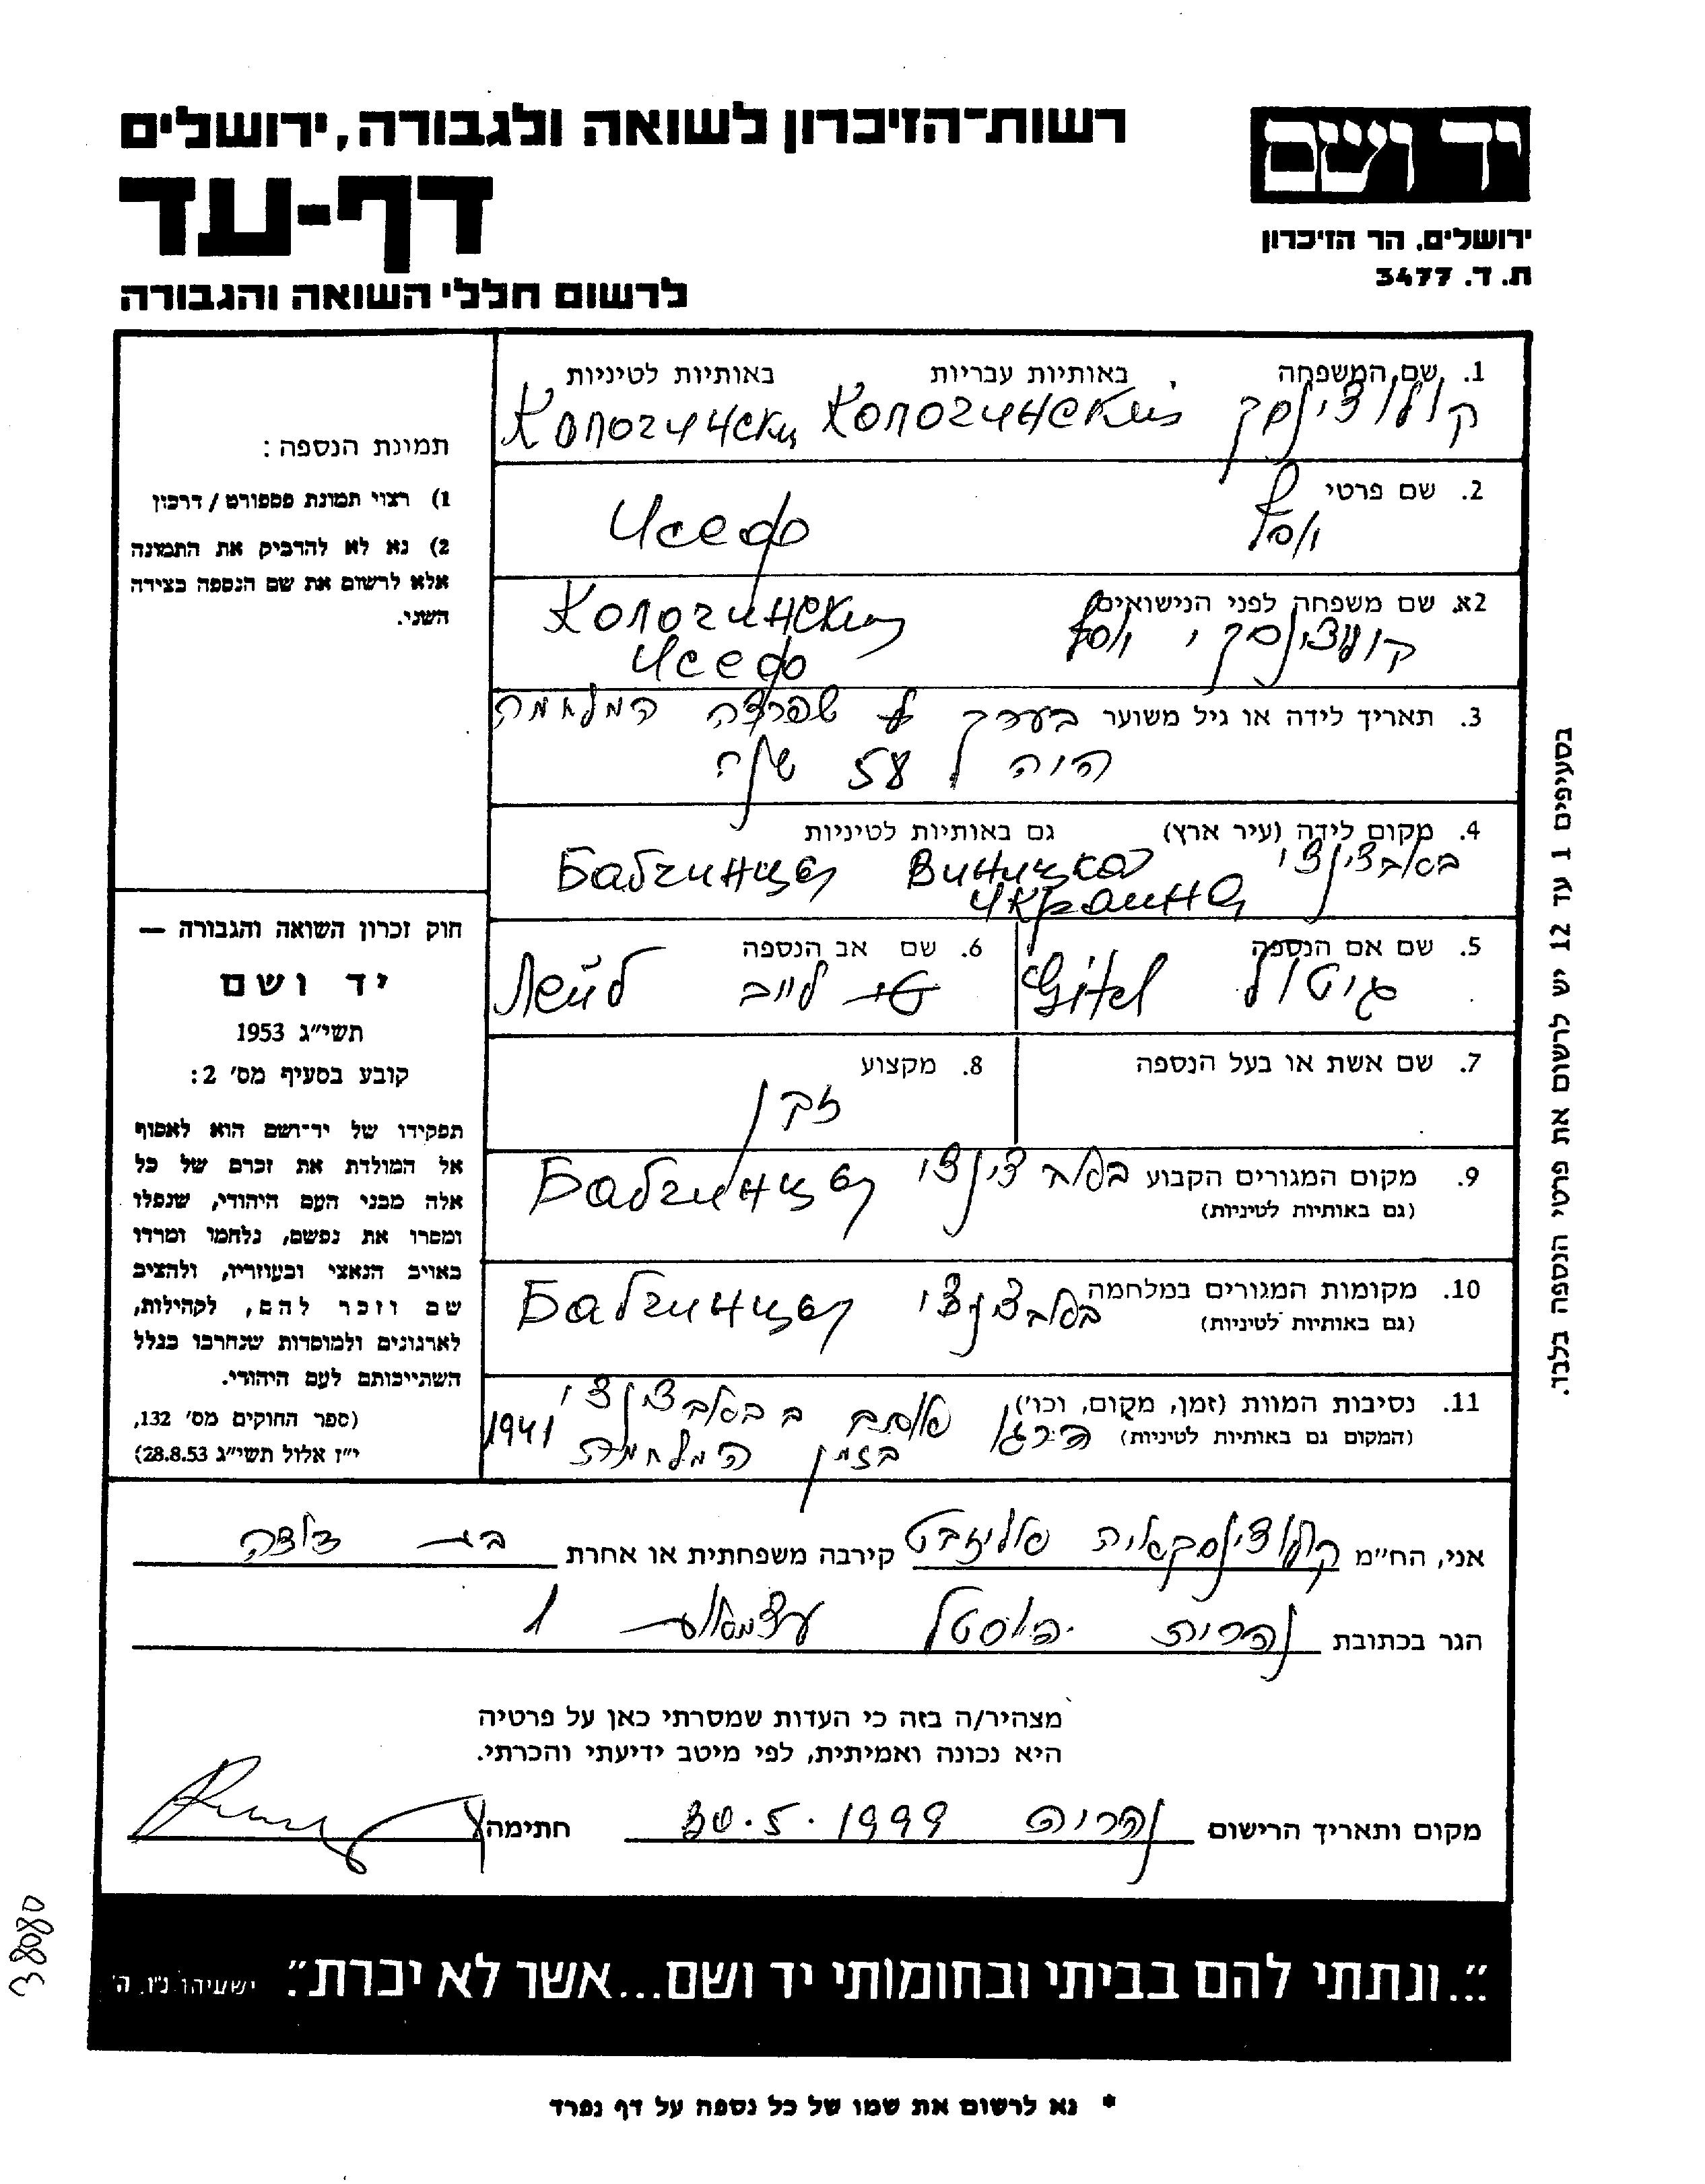 רשות־הזיכרון לשואה ולגבורה, ירושלים
דף-עד
לרשום חללי השואה והגבורה
יד ושם
ירושלים, הר הזיכרון
ת. ד. 3477
1. שם המשפחה באותיות עבריות באותיות לטיניות
Кологинский Кологински
2. שם פרטי יוסף Исеф
2א. שם משפחה לפני הנישואים
יוסף Кологинский
Исеф
3. תאריך לידה או גיל משוער בערך שפרצה המלחמה
היה ל 58 שנה
4. מקום לידה (עיר ארץ) גם באותיות לטיניות
Бабгинцы Виницка
Украина
5. שם אם הנספה גיטל Gitel
6. שם אב הנספה לייב Лейб
7. שם אשת או בעל הנספה
8. מקצוע זקן
9. מקום המגורים הקבוע Бабгинцы
(גם באותיות לטיניות)
10. מקומות המגורים במלחמה Бабгинцы
(גם באותיות לטיניות)
11. נסיבות המוות (זמן, מקום, וכו')
(המקום גם באותיות לטיניות) 1941
בזמן המלחמה
תמונת הנספה:
1) רצוי תמונת פספורט / דרכון
2) נא לא להדביק את התמונה
אלא לרשום את שם הנספה בצידה
השני.
חוק זכרון השואה והגבורה —
יד ושם
תשי״ג 1953
קובע בסעיף מס' 2:
תפקידו של יד־ושם הוא לאסוף
אל המולדת את זכרם של כל
אלה מבני העם היהודי, שנפלו
ומסרו את נפשם, נלחמו ומרדו
באויב הנאצי ובעוזריו, ולהציב
שם וזכר להם, לקהילות,
לארגונים ולמוסדות שנחרבו בגלל
השתייכותם לעם היהודי.
(ספר החוקים מס' 132,
י״ז אלול תשי״ג 28.8.53)
בסעיפים 1 עד 12 יש לרשום את פרטי הנספה בלבד.
אני, הח״מ קירבה משפחתית או אחרת בת דודה
הגר בכתובת נהריה הוסטל עצמאות 1
מצהיר/ה בזה כי העדות שמסרתי כאן על פרטיה
היא נכונה ואמיתית, לפי מיטב ידיעתי והכרתי.
מקום ותאריך הרישום נהריה 30.5.1999 חתימה
38080
"...ונתתי להם בביתי ובחומותי יד ושם...אשר לא יכרת". ישעיהו נ״ו, ה'
* נא לרשום את שמו של כל נספה על דף נפרד